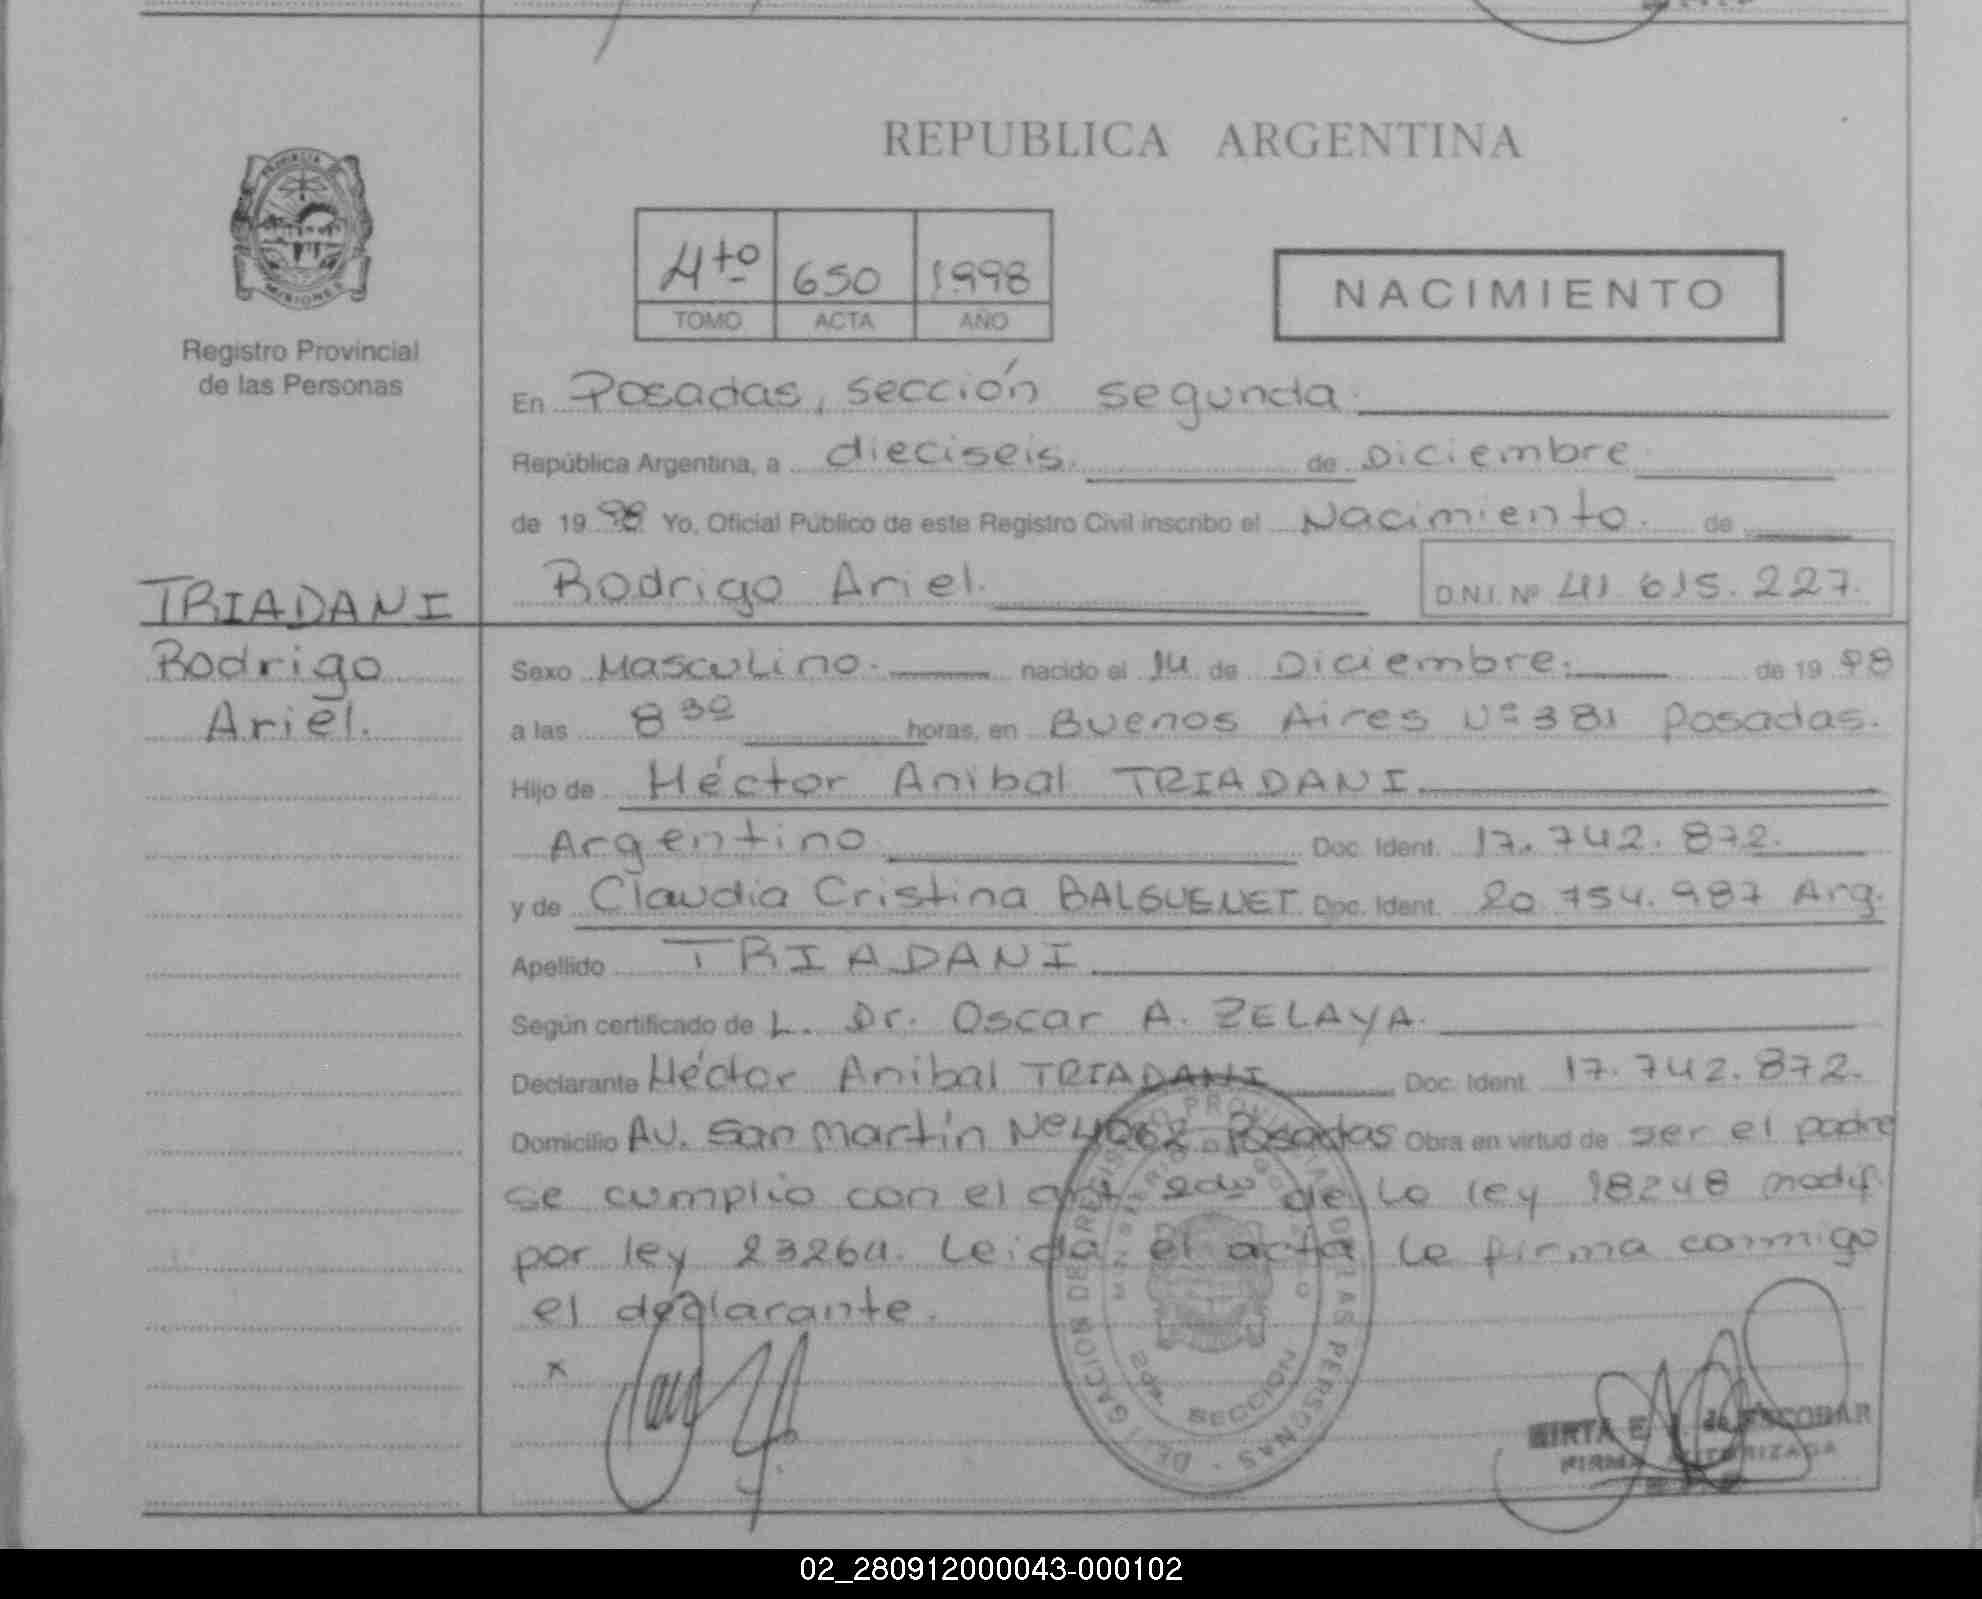 REPUBLICA ARGENTINA
PROVINCIA
MISIONES
Registro Provincial
de las Personas
4to 650 1998
TOMO ACTA AÑO
NACIMIENTO
En Posadas, sección segunda.
República Argentina, a dieciseis. de Diciembre
de 1998 Yo, Oficial Público de este Registro Civil inscribo el Nacimiento. de
Rodrigo Ariel. D.N.I. Nº 41.615.227.
TRIADANI
Rodrigo
Ariel.
Sexo Masculino. nacido el 14 de Diciembre. de 1998
a las 8 30 horas, en Buenos Aires Nº 381 Posadas.
Hijo de Héctor Anibal TRIADANI.
Argentino Doc. Ident. 17.742.872.
y de Claudia Cristina BALGUENET Doc. Ident. 20.754.987 Arg.
Apellido TRIADANI
Según certificado de L. Dr. Oscar A. ZELAYA.
Declarante Héctor Anibal TRIADANI Doc. Ident. 17.742.872.
Domicilio Av. San Martín Nº 4062 Posadas Obra en virtud de ser el padre
se cumplio con el art. 2do de la ley 18248 modif.
por ley 23264. Leida el acta la firma conmigo
el declarante.
x
DELEGACION DE REGISTRO PROVINCIAL DE LAS PERSONAS
MINISTERIO DE GOBIERNO
SECCION 2da.
MIRTA E. de ESCOBAR
FIRMA AUTORIZADA
02_280912000043-000102